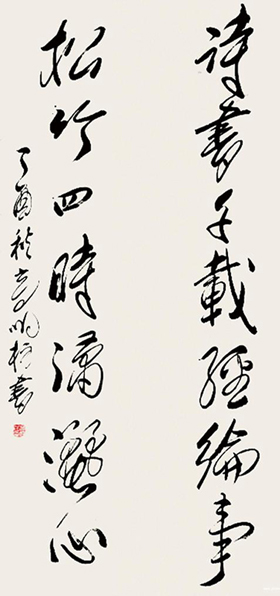 詩書千載經綸事
松竹四時瀟灑心
丁酉秋書